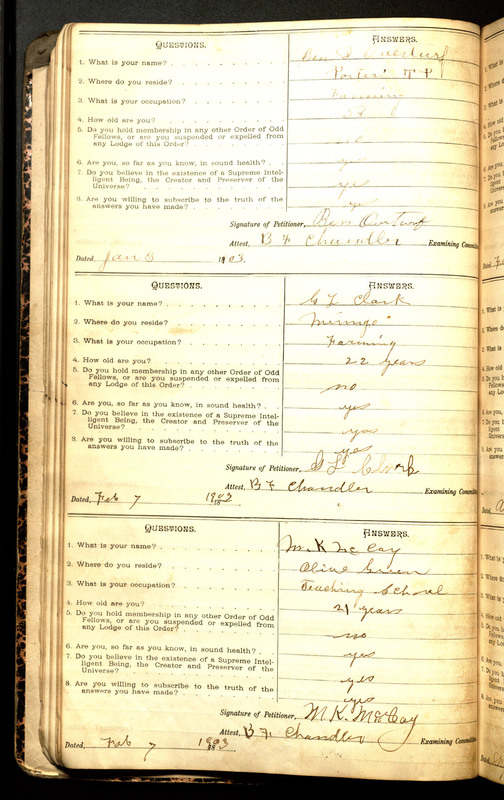 QUESTIONS. ANSWERS.
1. What is your name?
2. Where do you reside? Porter T P
3. What is your occupation?
4. How old are you?
5. Do you hold membership in any other Order of Odd
Fellows, or are you suspended or expelled from
any Lodge of this Order? no
6. Are you, so far as you know, in sound health? yes
7. Do you believe in the existence of a Supreme Intel-
ligent Being, the Creator and Preserver of the
Universe? yes
8. Are you willing to subscribe to the truth of the
answers you have made? yes
Signature of Petitioner, Ben
Attest, B F Chandler Examining Committee
Dated, Jan 3 1903.
QUESTIONS. ANSWERS.
1. What is your name? G L Clark
2. Where do you reside?
3. What is your occupation? Farming
4. How old are you? 22 years
5. Do you hold membership in any other Order of Odd
Fellows, or are you suspended or expelled from
any Lodge of this Order? no
6. Are you, so far as you know, in sound health? yes
7. Do you believe in the existence of a Supreme Intel-
ligent Being, the Creator and Preserver of the
Universe? yes
8. Are you willing to subscribe to the truth of the
answers you have made? yes
Signature of Petitioner, G L Clark
Attest, B F Chandler Examining Committee
Dated, Feb 7
QUESTIONS. ANSWERS.
1. What is your name? M. K McCay
2. Where do you reside? Olive Green
3. What is your occupation? Teaching School
4. How old are you? 21 years
5. Do you hold membership in any other Order of Odd
Fellows, or are you suspended or expelled from
any Lodge of this Order? no
6. Are you, so far as you know, in sound health? yes
7. Do you believe in the existence of a Supreme Intel-
ligent Being, the Creator and Preserver of the
Universe? yes
8. Are you willing to subscribe to the truth of the
answers you have made? yes
Signature of Petitioner, M. K. McCay
Attest, B F Chandler Examining Committee
Dated, Feb 7 1903